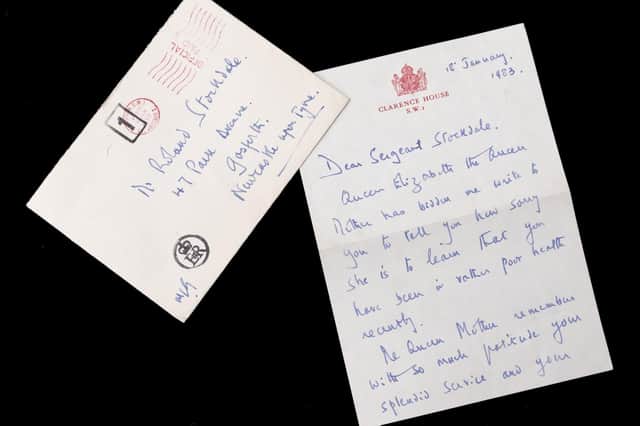 OFFICIAL
PAID
1
Mr Roland Stockdale.
47 Park Avenue.
Gosforth.
Newcastle upon Tyne.
EIIR
CLARENCE HOUSE
S.W.1
18th January.
1983.
Dear Sergeant Stockdale.
Queen Elizabeth the Queen
Mother has bidden me write to
you to tell you how sorry
she is to learn that you
have been in rather poor health
recently.
The Queen Mother remembers
with so much gratitude your
splendid service and your